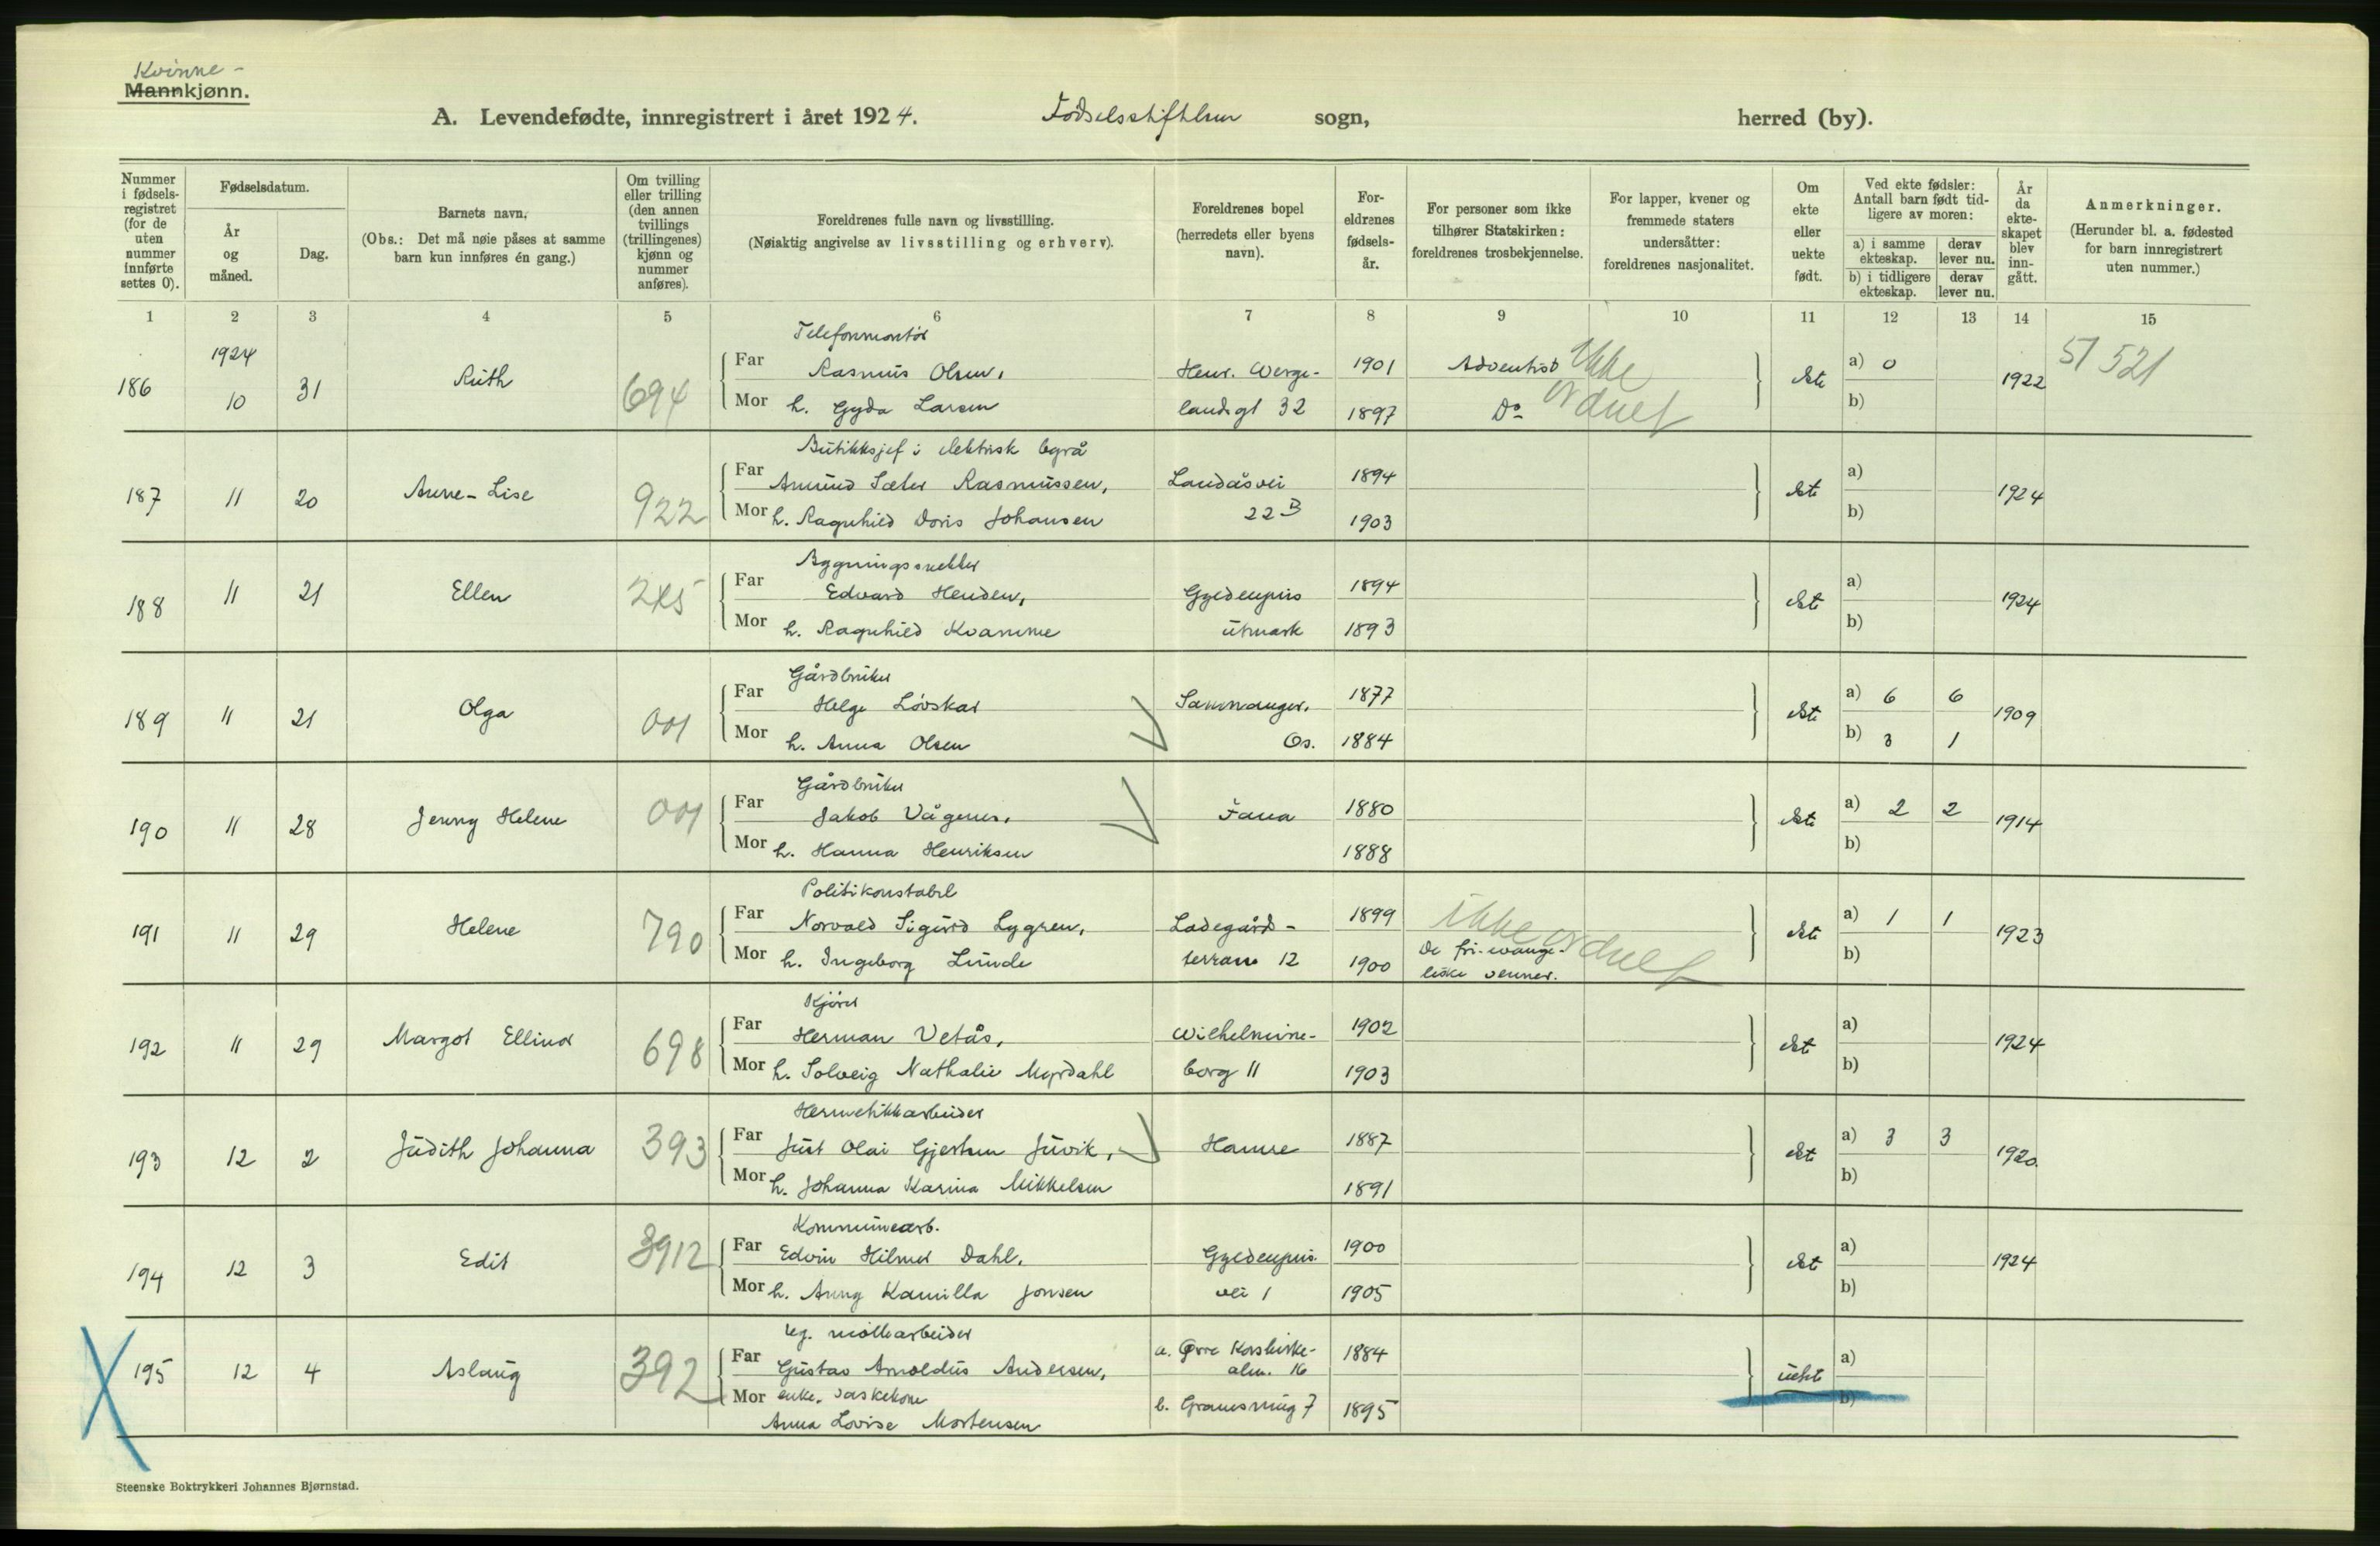 Kvinne-
Mannkjønn.
A. Levendefødte, innregistrert i året 1924. Fødselsstiftelsen sogn, herred (by).
Nummer i fødsels-registret (for de uten nummer innførte settes 0).
Fødselsdatum.
År og måned.
Dag.
Barnets navn.
(Obs.: Det må nøie påses at samme barn kun innføres én gang.)
Om tvilling eller trilling (den annen tvillings (trillingenes) kjønn og nummer anføres).
Foreldrenes fulle navn og livsstilling.
(Nøiaktig angivelse av livsstilling og erhverv).
Foreldrenes bopel (herredets eller byens navn).
For-eldrenes fødsels-år.
For personer som ikke tilhører Statskirken: foreldrenes trosbekjennelse.
For lapper, kvener og fremmede staters undersåtter: foreldrenes nasjonalitet.
Om ekte eller uekte født.
Ved ekte fødsler: Antall barn født tid-ligere av moren:
a) i samme ekteskap. derav lever nu.
b) i tidligere ekteskap. derav lever nu.
År da ekte-skapet blev inn-gått.
Anmerkninger.
(Herunder bl. a. fødested for barn innregistrert uten nummer.)
1 2 3 4 5 6 7 8 9 10 11 12 13 14 15
Telefonmontør
1924
186 10 31 Ruth 694 Far Rasmus Olsen, Henr. Werge- 1901 Adventist Ikke ekte a) 0 1922 51 521
Mor h. Gyda Larsen landsgt 32 1897 Do ordnet b)
Butikksjef i elektrisk byrå
187 11 20 Anne-Lise 922 Far Amund Sæter Rasmussen, Landåsvei 1894 ekte a) 1924
Mor h. Ragnhild Doris Johansen 22 B 1903 b)
Bygningssnekker
188 11 21 Ellen 245 Far Edvard Henden, Gyldenpris 1894 ekte a) 1924
Mor h. Ragnhild Kvamme utmark 1893 b)
Gårdbruker
189 11 21 Olga 001 Far Helge Løvskar Samnanger. 1877 ekte a) 6 6 1909
Mor h. Anna Olsen Os. 1884 b) 3 1
Gårdbruker
190 11 28 Jenny Helene 001 Far Jakob Vågenes, Fana 1880 ekte a) 2 2 1914
Mor h. Hanna Henriksen 1888 b)
Politikonstabel
191 11 29 Helene 790 Far Norvald Sigurd Lygren, Ladegård- 1899 ikke ordnet ekte a) 1 1 1923
Mor h. Ingeborg Lunde terrasse 12 1900 De fri-evange- b)
liske venner.
Kjører
192 11 29 Margot Ellinor 698 Far Herman Vetås, Wilhelmine- 1902 ekte a) 1924
Mor h. Solveig Nathalie Myrdahl borg 11 1903 b)
Hermetikkarbeider
193 12 2 Judith Johanna 393 Far Just Olai Gjertsen Juvik, Hamre 1887 ekte a) 3 3 1920.
Mor h. Johanna Karina Mikkelsen 1891 b)
Kommunearb.
194 12 3 Edit 3912 Far Edvin Hilmer Dahl, Gyldenpris 1900 ekte a) 1924
Mor h. Anny Kamilla Jonsen vei 1 1905 b)
ug. møllearbeider
195 12 4 Aslaug 392 Far Gustav Arnoldus Andersen, a. Øvre Korskirke- 1884 uekte a)
alm. 16
Mor enke. vaskekone b. Gramsmug 7 1895 b)
Anna Lovise Mortensen
Steenske Boktrykkeri Johannes Bjørnstad.